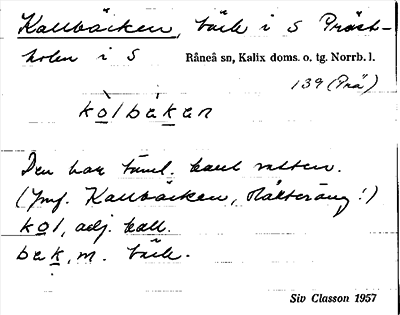 Kallbäcken, bäck i S Präst-
holm i S Råneå sn, Kalix doms. o. tg. Norrb. l.
139 (Prä)
kòlbekan
Den har täml. kallt vatten.
(Jmf. Kallbäcken, Råkteräng!)
kol, adj. kall.
bɛk, m. bäck.
Siv Classon 1957